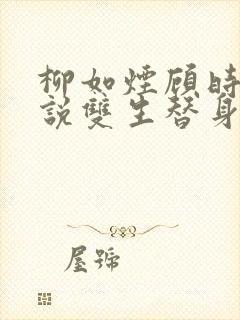 柳如煙顾時
說雙生替身
屋號